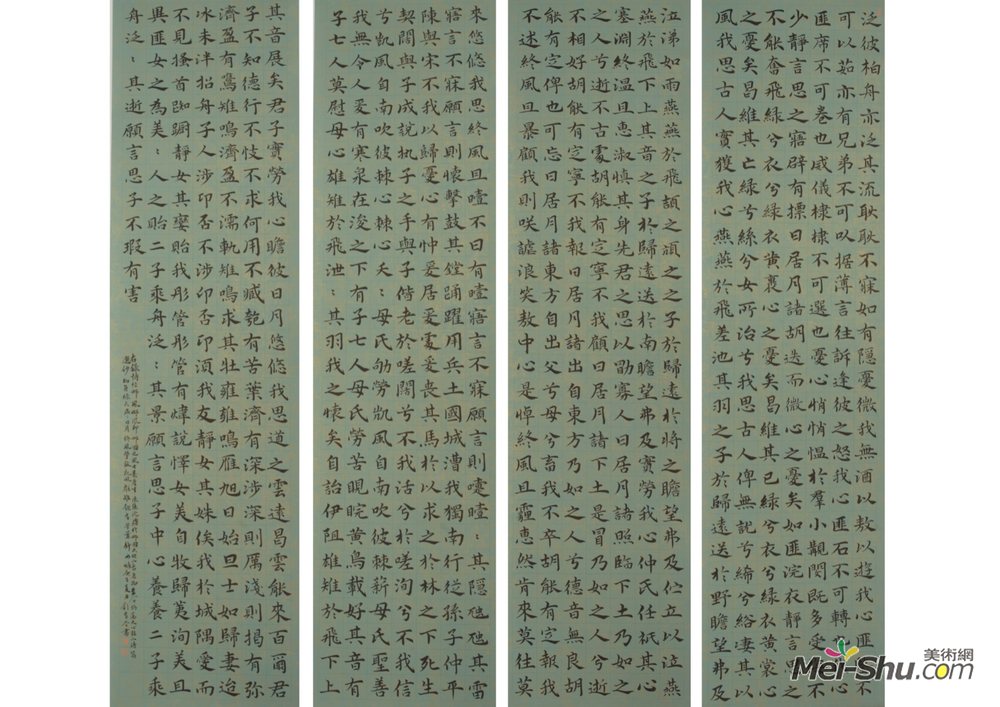 泛彼柏舟亦泛其流耿耿不寐如有隱憂微我無酒以敖以遊我心匪不
可以茹亦有兄弟不可以据薄言往訴逢彼之怒我心匪石不可轉
匪席不可卷也威儀棣棣不可選也憂心悄悄慍於羣小覯閔既多受不
少靜言思之寤辟有摽日居月諸胡迭而微心之憂矣如匪浣衣靜言之
不能奮飛綠兮衣兮綠衣黃裏心之憂矣曷維其已綠兮衣兮綠衣黃裳心
之憂矣曷維其亡綠兮絲兮女所治兮我思古人俾無訧兮絺兮綌兮淒其以
風我思古人實獲我心燕燕於飛差池其羽之子於歸遠送於野瞻望弗及
泣涕如雨燕燕於飛頡之頏之之子於歸遠於將之瞻望弗及佇立以泣燕
燕於飛下上其音之子於歸遠送於南瞻望弗及實勞我心仲氏任祇其心
塞淵終溫且惠淑慎其身先君之思以勖寡人日居月諸照臨下土乃如
之人兮逝不古處胡能有定寧不我顧日居月諸下土是冒乃如之人兮逝
不相好胡能有定寧不我報日居月諸出自東方乃如之人兮德音無良胡
能有定俾也可忘日居月諸東方自出父兮母兮畜我不卒胡能有定報我
不述終風且暴顧我則咲謔浪笑敖中心是悼終風且霾惠然肯來莫往莫
來悠悠我思終風且曀不日有曀寤言不寐願言則嚏曀：其隂虺虺其雷
寤言不寐願言則懷擊鼓其鏜踴躍用兵土國城漕我獨南行從孫子仲平
陳與宋不我以歸憂心有忡爰居爰處爰喪其馬於以求之於林之下死生
契闊與子成說執子之手與子偕老於嗟闊兮不我活兮於嗟洵兮不我信
兮凱風自南吹彼棘心棘心夭：母氏劬勞凱風自南吹彼棘薪母氏聖善
我無令人爰有寒泉在浚之下有子七人母氏勞苦睍睆黃鳥載好其音有
子七人莫慰母心雄雉於飛泄：其羽我之懷矣自詒伊阻雄雉於飛下上
其音展矣君子實勞我心瞻彼日月悠悠我思道之雲遠曷雲能來百爾君
子不知德行不忮不求何用不臧匏有苦葉濟有深涉深則厲淺則揭有弥
濟盈有鷕雉鳴濟盈不濡軌雉鳴求其牡雍雍鳴雁旭日始旦士如歸妻迨
冰未泮招舟子人涉卬否不涉卬否卬須我友靜女其姝俟我於城隅愛而
不見搔首踟躕靜女其孌貽我彤管彤管有煒說懌女美自牧歸荑洵美且
異匪女之為美：人之貽二子乘舟泛：其景願言思子中心養養二子乘
舟泛：其逝願言思子不瑕有害
美術網
Mei-Shu.com